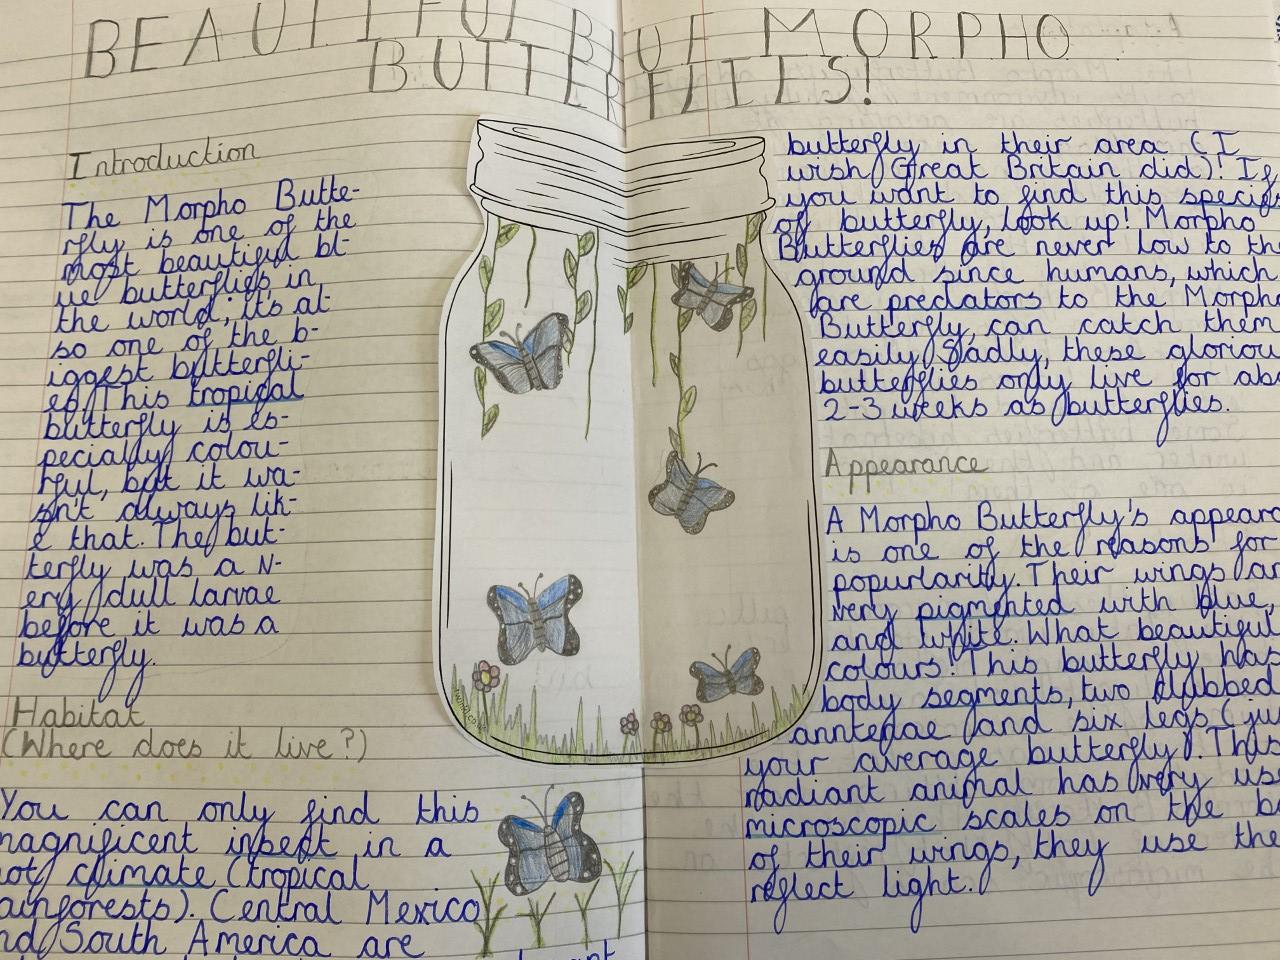 BEAUTIFUL BLUE MORPHO
BUTTERFLIES!
Introduction
The Morpho Butte-
rfly is one of the
most beautiful bl-
ue butterflies in
the world; it's al-
so one of the b-
iggest butterfli-
es. This tropical
butterfly is es-
pecially colou-
rful, but it wa-
sn't always lik-
e that. The but-
terfly was a v-
ery dull larvae
before it was a
butterfly.
Habitat
(Where does it live?)
You can only find this
magnificent insect in a
hot climate (tropical
rainforests). Central Mexico
and South America are
butterfly in their area (I
wish Great Britain did)! If
you want to find this species
of butterfly, look up! Morpho
Butterflies are never low to the
ground since humans, which
are predators to the Morpho
Butterfly, can catch them
easily. Sadly, these glorious
butterflies only live for
2-3 weeks as butterflies.
Appearance
A Morpho Butterfly's
is one of the reasons for
popurlarity. Their wings
very pigmented with blue,
and white. What beautiful
colours! This butterfly has
body segments, two clubbed
anntenae and six legs
your average butterfly). This
radiant animal has very
microscopic scales on the
of their wings, they use
reflect light.